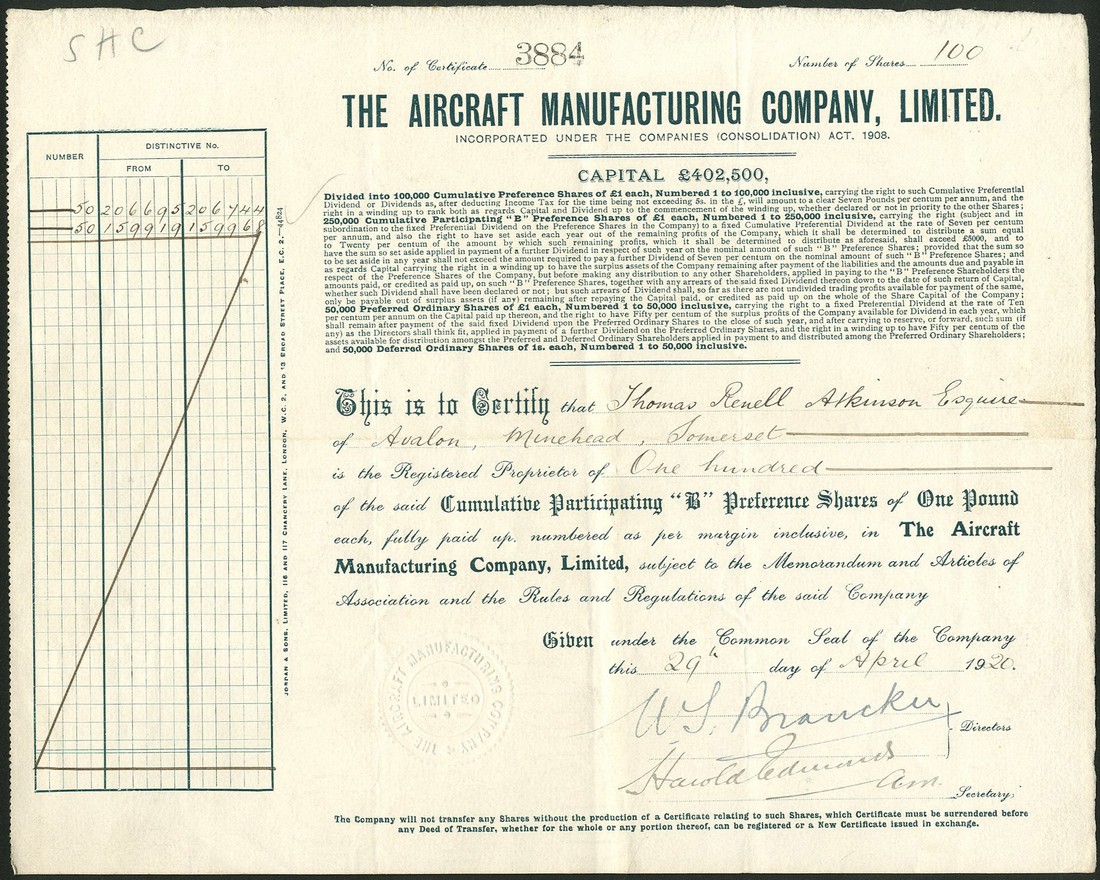 SHC
No. of Certificate 3884 Number of Shares 100
THE AIRCRAFT MANUFACTURING COMPANY, LIMITED.
INCORPORATED UNDER THE COMPANIES (CONSOLIDATION) ACT. 1908.
CAPITAL £402,500,
Divided into 100,000 Cumulative Preference Shares of £1 each, Numbered 1 to 100,000 inclusive, carrying the right to such Cumulative Preferential
Dividend or Dividends as, after deducting Income Tax for the time being not exceeding 5s. in the £, will amount to a clear Seven Pounds per centum per annum, and the
right in a winding up to rank both as regards Capital and Dividend up to the commencement of the winding up, whether declared or not in priority to the other Shares;
250,000 Cumulative Participating "B" Preference Shares of £1 each, Numbered 1 to 250,000 inclusive, carrying the right (subject and in
subordination to the fixed Preferential Dividend on the Preference Shares in the Company) to a fixed Cumulative Preferential Dividend at the rate of Seven per centum
per annum, and also the right to have set aside each year out of the remaining profits of the Company, which it shall be determined to distribute a sum equal
to Twenty per centum of the amount by which such remaining profits, which it shall be determined to distribute as aforesaid, shall exceed £5000, and to
have the sum so set aside applied in payment of a further Dividend in respect of such year on the nominal amount of such "B" Preference Shares; provided that the sum so
to be set aside in any year shall not exceed the amount required to pay a further Dividend of Seven per centum on the nominal amount of such "B" Preference Shares; and
as regards Capital carrying the right in a winding up to have the surplus assets of the Company remaining after payment of the liabilities and the amounts due and payable in
respect of the Preference Shares of the Company, but before making any distribution to any other Shareholders, applied in paying to the "B" Preference Shareholders the
amounts paid, or credited as paid up, on such "B" Preference Shares, together with any arrears of the said fixed Dividend thereon down to the date of such return of Capital,
whether such Dividend shall have been declared or not; but such arrears of Dividend shall, so far as there are not undivided trading profits available for payment of the same,
only be payable out of surplus assets (if any) remaining after repaying the Capital paid, or credited as paid up on the whole of the Share Capital of the Company;
50,000 Preferred Ordinary Shares of £1 each, Numbered 1 to 50,000 inclusive, carrying the right to a fixed Preferential Dividend at the rate of Ten
per centum per annum on the Capital paid up thereon, and the right to have Fifty per centum of the surplus profits of the Company available for Dividend in each year, which
shall remain after payment of the said fixed Dividend upon the Preferred Ordinary Shares to the close of such year, and after carrying to reserve, or forward, such sum (if
any) as the Directors shall think fit, applied in payment of a further Dividend on the Preferred Ordinary Shares, and the right in a winding up to have Fifty per centum of the
assets available for distribution amongst the Preferred and Deferred Ordinary Shareholders applied in payment to and distributed among the Preferred Ordinary Shareholders;
and 50,000 Deferred Ordinary Shares of 1s. each, Numbered 1 to 50,000 inclusive.
NUMBER DISTINCTIVE No.
FROM TO
50 206695 206744
50 159919 159968
JORDAN & SONS, LIMITED, 116 AND 117 CHANCERY LANE, LONDON, W.C. 2, AND 13 BROAD STREET PLACE, E.C. 2.—44824
This is to Certify that Thomas Renell Atkinson Esquire
of Avalon, Minehead, Somerset
is the Registered Proprietor of One hundred
of the said Cumulative Participating "B" Preference Shares of One Pound
each, fully paid up. numbered as per margin inclusive, in The Aircraft
Manufacturing Company, Limited, subject to the Memorandum and Articles of
Association and the Rules and Regulations of the said Company
Given under the Common Seal of the Company
this 29th day of April 1920.
THE AIRCRAFT MANUFACTURING COMPANY
LIMITED
W S Brancker
Directors
Harold Edmunds
Secretary,
The Company will not transfer any Shares without the production of a Certificate relating to such Shares, which Certificate must be surrendered before
any Deed of Transfer, whether for the whole or any portion thereof, can be registered or a New Certificate issued in exchange.